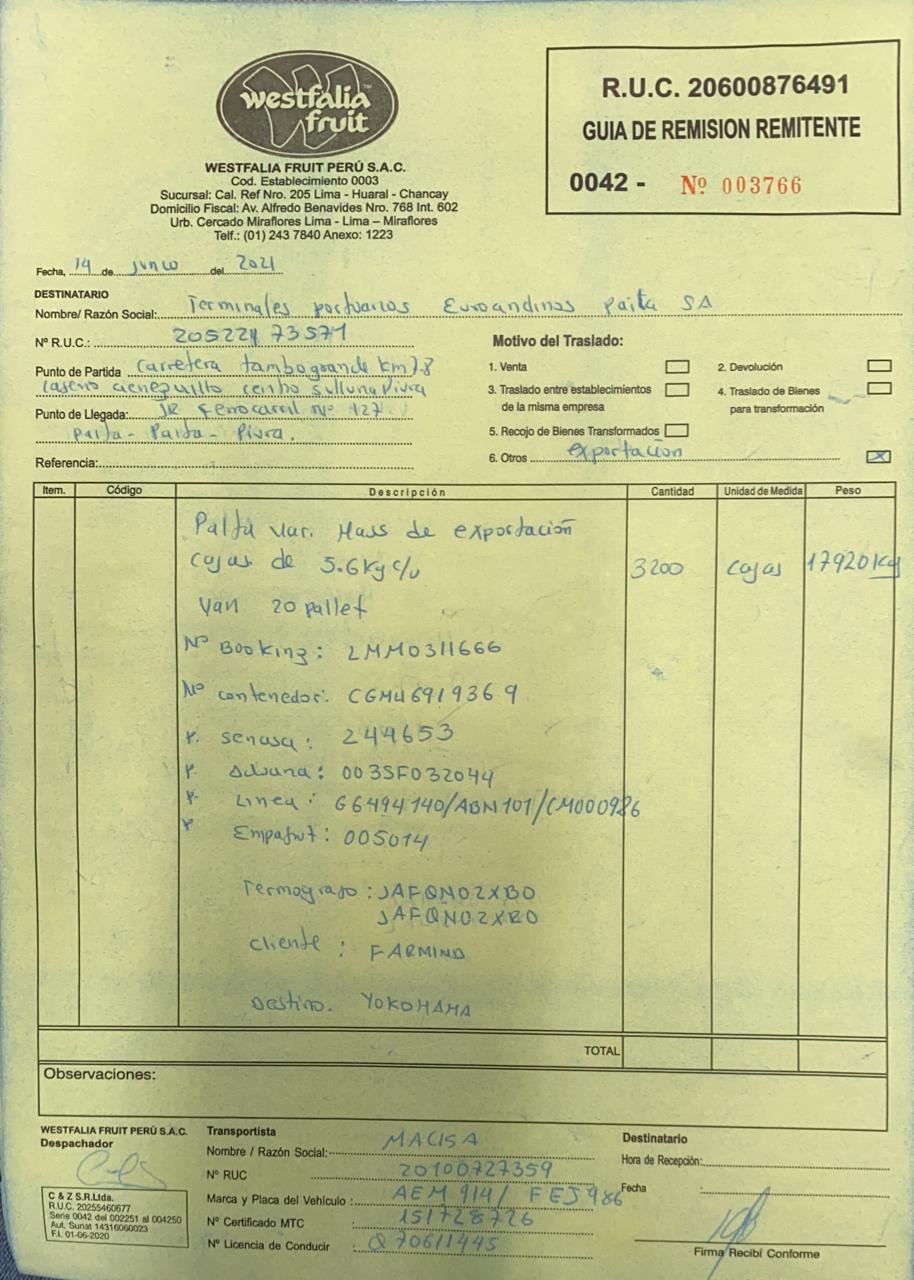 westfalia fruit
WESTFALIA FRUIT PERÚ S.A.C.
Cod. Establecimiento 0003
Sucursal: Cal. Ref Nro. 205 Lima - Huaral - Chancay
Domicilio Fiscal: Av. Alfredo Benavides Nro. 768 Int. 602
Urb. Cercado Miraflores Lima - Lima – Miraflores
Telf.: (01) 243 7840 Anexo: 1223
R.U.C. 20600876491
GUIA DE REMISION REMITENTE
0042 - Nº 003766
Fecha, 14 de Junio del 2021
DESTINATARIO
Nombre/ Razón Social: Terminales portuarios Euroandinos Paita SA
Nº R.U.C.: 20522473571
Punto de Partida carretera tambogrande km 7.8
caserio cieneguillo centro sullana Piura
Punto de Llegada: JR Ferrocarril Nº 127
Paita - Paita - Piura.
Referencia:
Motivo del Traslado:
1. Venta
2. Devolución
3. Traslado entre establecimientos de la misma empresa
4. Traslado de Bienes para transformación
5. Recojo de Bienes Transformados
6. Otros exportación x
Item. Código Descripción Cantidad Unidad de Medida Peso
Palta var. Hass de exportación
cajas de 5.6kg c/u 3200 cajas 17920kg
Van 20 pallet
Nº Booking: LMM0311666
Nº contenedor: CGMU6919369
P. Senasa: 244653
P. Aduana: 003SF032044
P. Linea: G6494140/ABN101/CM000926
P Empafrut: 005014
Termografo: JAFQN02XB0
JAFQN02XR0
cliente: FARMIND
Destino. YOKOHAMA
TOTAL
Observaciones:
WESTFALIA FRUIT PERÚ S.A.C.
Despachador
C & Z S.R.Ltda.
R.U.C. 20255460677
Serie 0042 del 002251 al 004250
Aut. Sunat 14316060023
F.I. 01-06-2020
Transportista
Nombre / Razón Social: MACISA
Nº RUC 20100727359
Marca y Placa del Vehículo: AEM 914/ FEJ986
Nº Certificado MTC 151728726
Nº Licencia de Conducir: Q70611445
Destinatario
Hora de Recepción:
Fecha
Firma Recibí Conforme